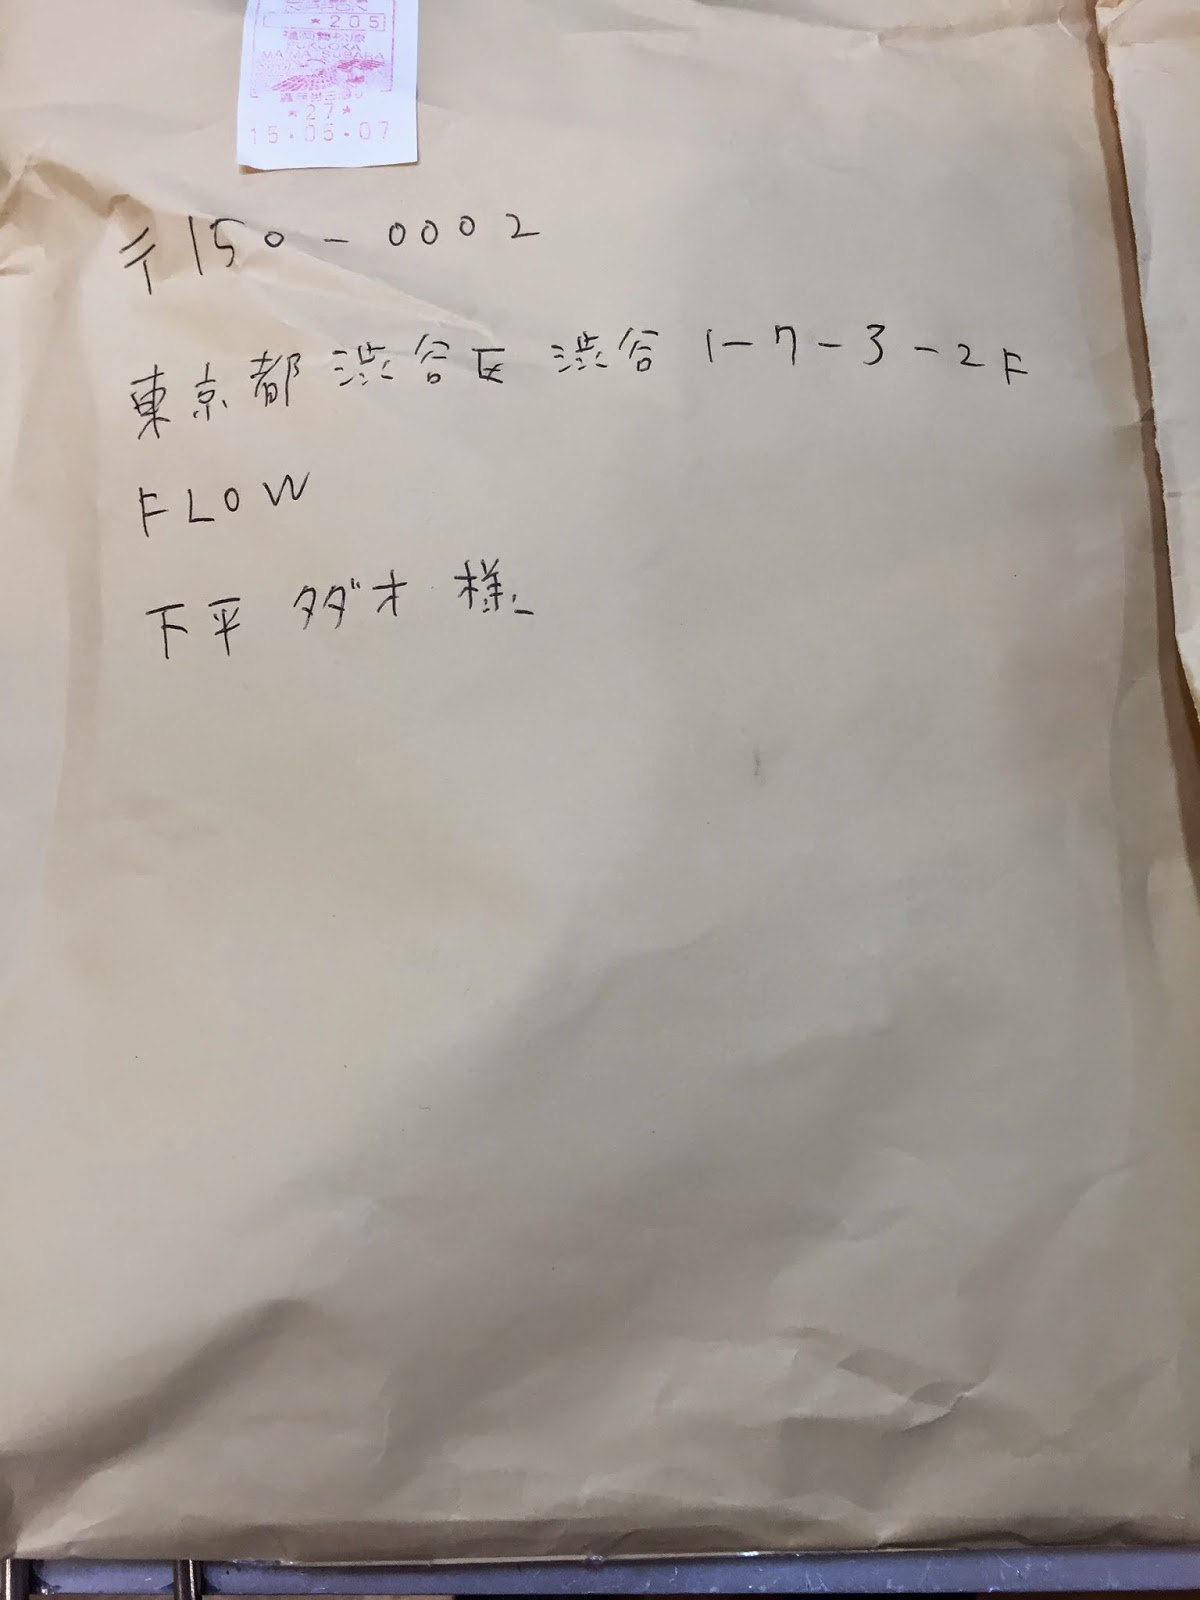 NIPPON
*205
福岡舞松原
FUKUOKA
MAIMATSUBARA
*27*
15・05・07
〒150-0002
東京都渋谷区渋谷1-7-3-2F
FLOW
下平 タダオ 様